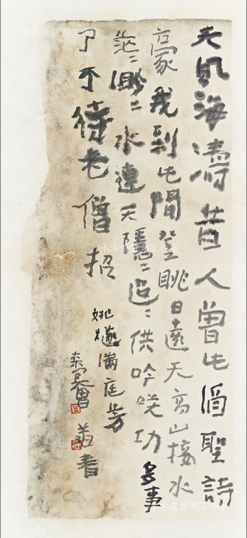 天風海濤昔人曾此酒聖詩
豪我到此間登眺日遠天高山接水
茫〻渺〻水連天隱〻迢〻供吟笑功名事
了不待老僧招
姚燧滿庭芳
書